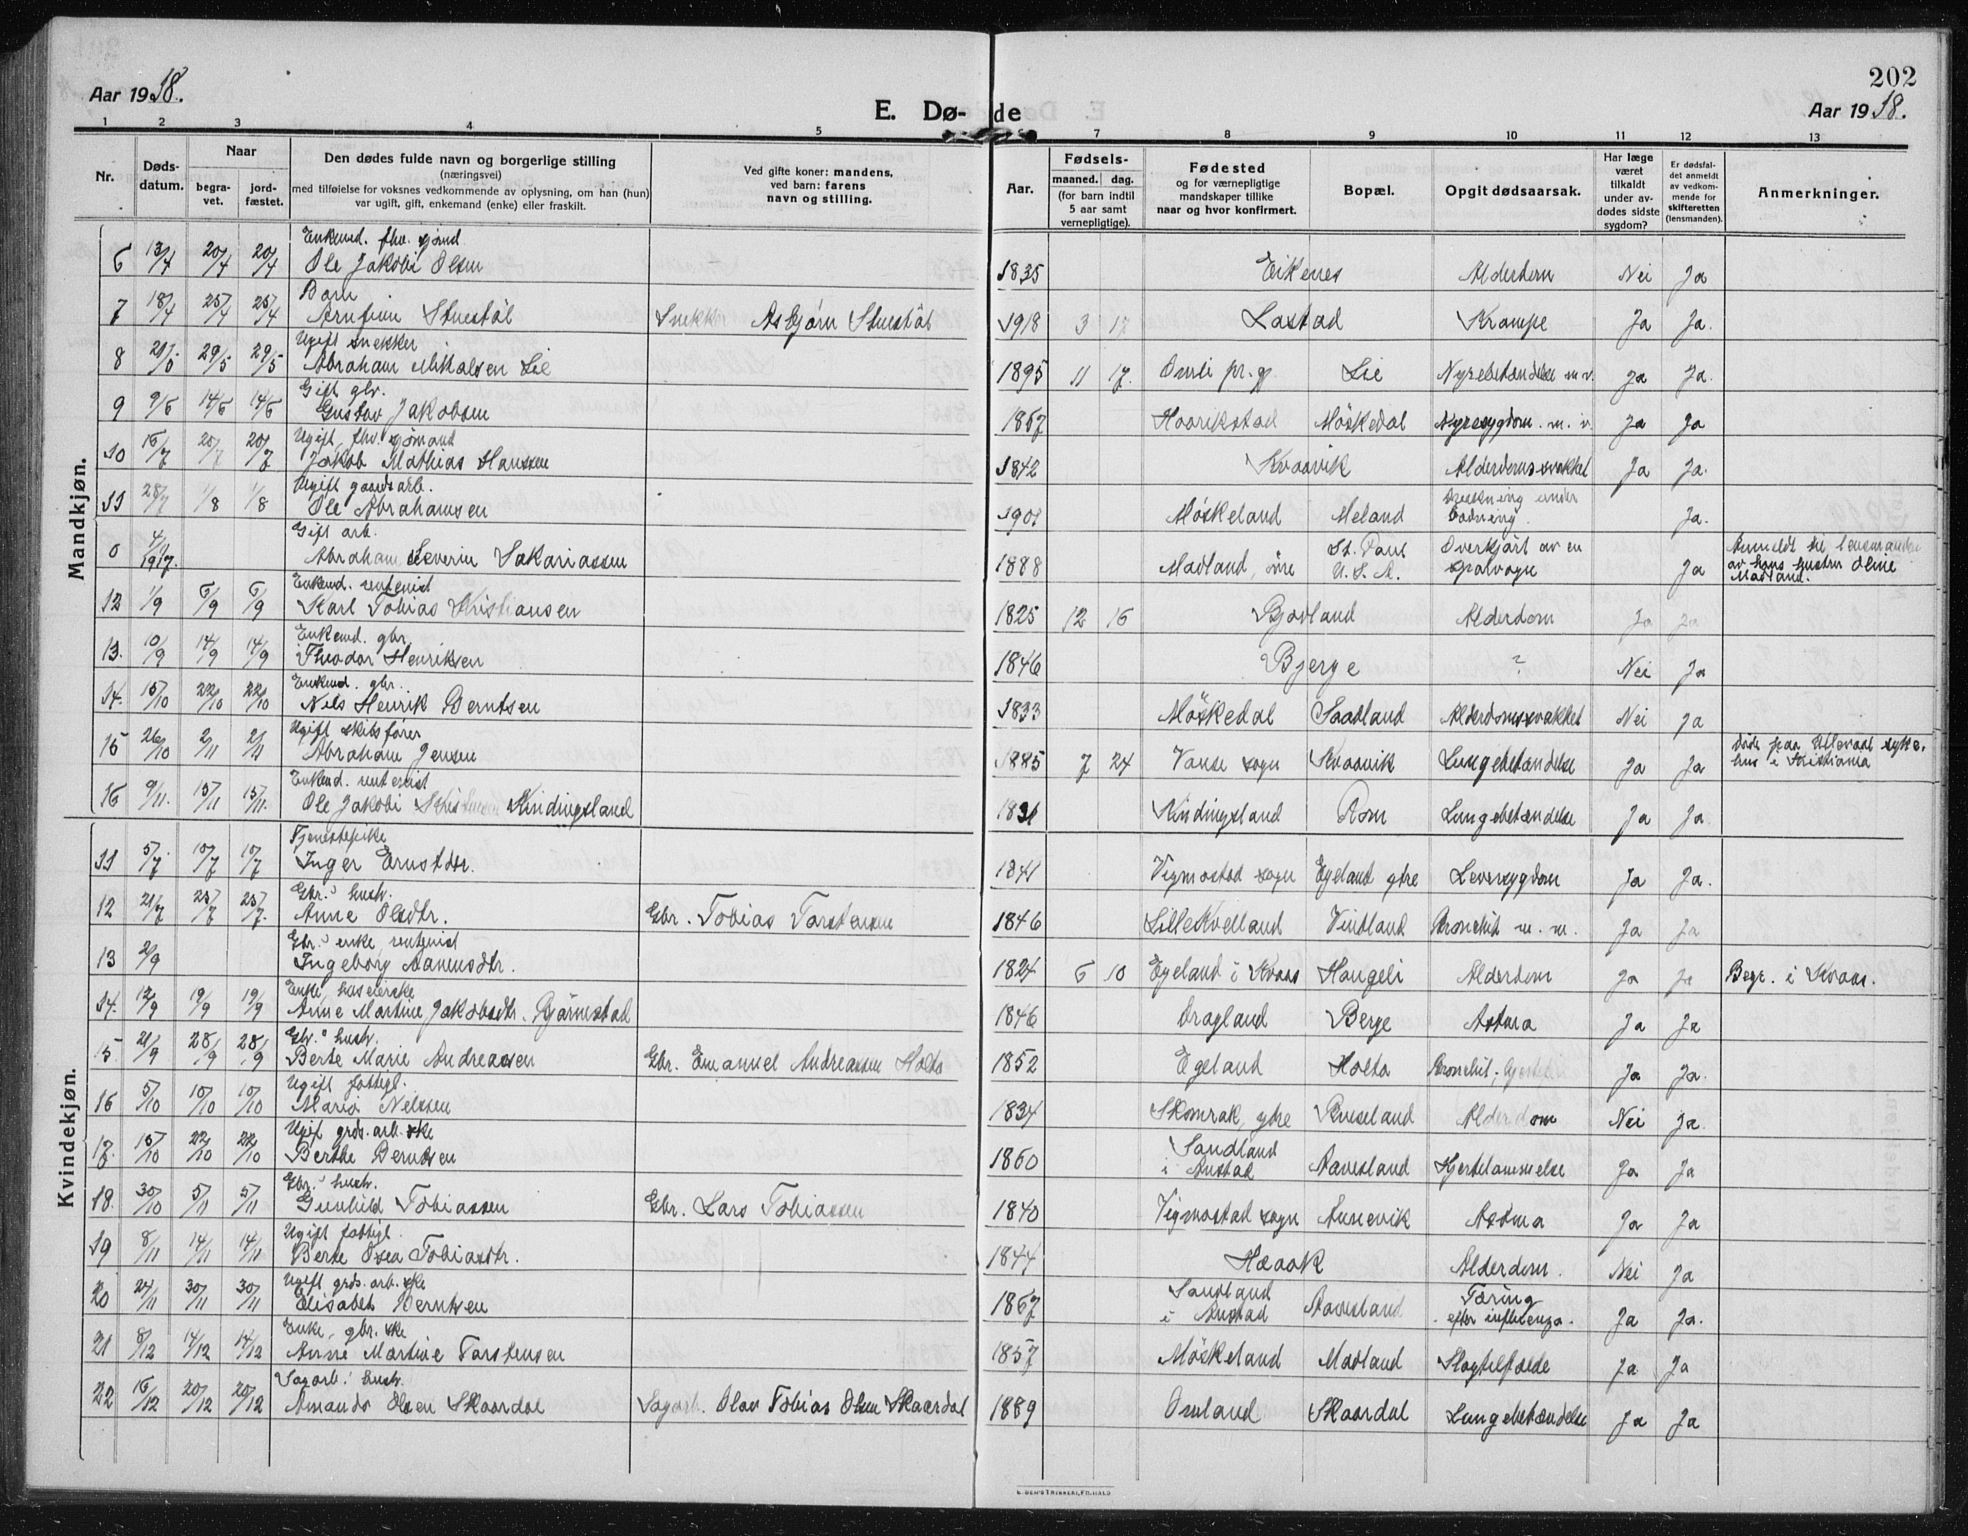 202
Aar 1918.
E. Dø- de
Aar 1918.
1 2 3 4 5 6 7 8 9 10 11 12 13
Nr.
Døds-
datum.
Naar
begra-
vet.
jord-
fæstet.
Den dødes fulde navn og borgerlige stilling
(næringsvei)
med tilføielse for voksnes vedkommende av oplysning, om han (hun)
var ugift, gift, enkemand (enke) eller fraskilt.
Ved gifte koner: mandens,
ved barn: farens
navn og stilling.
Aar.
Fødsels-
maaned. dag.
(for barn indtil
5 aar samt
vernepligtige).
Fødested
og for værnepligtige
mandskaper tillike
naar og hvor konfirmert.
Bopæl.
Opgit dødsaarsak.
Har læge
været
tilkaldt
under av-
dødes sidste
sygdom?
Er dødsfal-
det anmeldt
av vedkom-
mende for
skifteretten
(lensmanden).
Anmerkninger.
Mandkjøn.
Enkemd. fhv. sjømd
6 13/4 20/4 20/4 Ole Jakobi Olsen 1835 Eikenes Alderdom Nei Ja
Barn
7 18/4 25/4 25/4 Arnfinn Stuestøl Snekker Asbjørn Stuestøl 1918 3 17 Lastad Krampe Ja Ja.
Ugift snekker
8 29/5 29/5 Abraham Mikalsen Lie 1895 11 17. Omli pr.gj. Lie Nyrebetændelse m.v. Ja Ja.
Gift gbr.
9 9/6 14/6 14/6 Gustav Jakobsen 1867 Haarikstad Møskedal Nyresygdom. m. v. Ja Ja
Ugift, fhv. sjømand
10 16/7 20/7 20/7 Jakob Mathias Hanssen 1842 Kvaavik Alderdomssvakket Ja Ja.
Ugift gaardsarb.
11 28/7 1/8 1/8 Ole Abrahamsen 1901 Møskeland Meland under badning. Ja.
Gift arb.
0 4/1 1917. Abraham Severin Sakariassen 1888 Madland, øvre St. Paul U.S.A. Overkjørt av en sporvogn Ja Anmeldt til lensmanden
av hans hustru Oline
Madland.
Enkemd. rentenist
12 1/9 6/9 6/9 Karl Tobias Kristiansen 1825 12 16 Bjaaland Alderdom Ja Ja
Enkemd. gbr.
13. 10/9 14/9 14/9 Theodor Henriksen 1846 Bjerge ? Nei Ja
Enkemd. gbr.
14. 15/10 22/10 22/10 Nils Henrik Berntsen 1833 Møskedal Saadland Alderdomssvakket Nei Ja
Ugift skibsfører
15 26/10 2/11 2/11 Abraham Jensen 1885 7 24 Vanse sogn Kvaavik Lungebetændelse Ja Ja Døde paa Ullevaal syke-
hus i Kristiania
Enkemd. rentenist
16 9/11. 15/11 15/11. Ole Jakobi Kindingsland 1831 Kindingsland Rom Lungebetændelse Ja Ja.
Kvindekjøn.
Tjenestepike
11 5/7 10/7 10/7 Inger Ernstdtr. 1841 Vigmostad sogn Egeland ytre Leversygdom Ja Ja.
Gbr.' hustr.
12 21/7 25/7 25/7. Anne Olsdtr. Gbr. Tobias Torstensen 1846 Lille Kvelland Vindland Bronchit m. m. Ja Ja
Gbr.' enke, rentenist
13 2/9 Ingeborg Aanensdtr. 1824 6 10 Egeland i Kvaas Haugeli Alderdom Ja Ja Begr. i Kvaas.
Enke, huseierske
14. 12/9 19/9 19/9 Anne Martine Jakobsdtr. Gjørnestad 1846 Dragland Berge Astma Ja Ja
Gbr.' hustr.
15. 21/9 28/9 28/9 Berte Marie Andreassen Gbr. Emanuel Andreassen Holta 1852 Egeland Holta Bronchit, Ja Ja.
Ugift fattigl.
16 5/10 10/10 10/10 Maria Nelssen 1834 Skomrak, ytre Røiseland Alderdom Nei Ja.
Ugift grds. arb.ske
17. 15/10 22/10 22/10 Berthe Berntsen 1860 Sandland
i Austad Aavesland Hjertelammelse Ja Ja
Gbr.' hustr.
18. 30/10 5/11 5/11 Gunhild Tobiassen Gbr. Lars Tobiassen 1840 Vigmostad sogn Aunevik Astma Ja Ja
Ugift fattigl.
19 8/11 14/11 14/11 Berte Osea Tobiasdtr. 1844 Haaok Alderdom. Nei Ja
Ugift grds. arb. ske
20 24/11 30/11 30/11 Elisabet Berntsen 1867 Sandland
i Austad Aavesland Tæring
efter influenza. Ja Ja.
Enke, gbr.ske
21 8/12 14/12 14/12 Anne Martine Torstensen 1857 Møskeland Madland Slagtilfælde Ja Ja
Sagarb.' hustr.
22 16/12 20/12 20/12 Amanda Olsen Skaardal Sagarb. Olav Tobias Olsen Skaardal 1889 Omland Skaardal Lungebetændelse Ja Ja